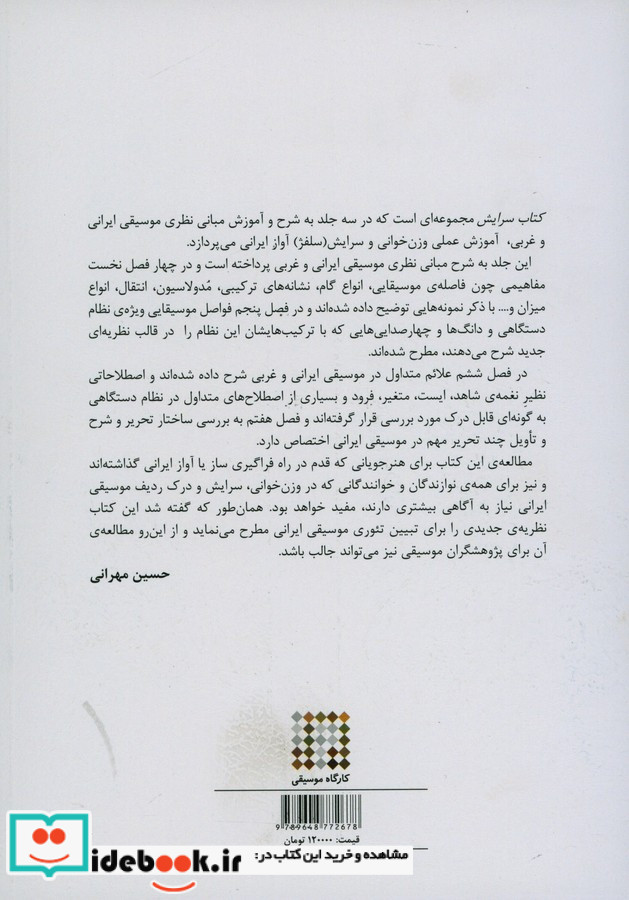 کتاب سرایش مجموعه‌ای است که در سه جلد به شرح و آموزش مبانی نظری موسیقی ایرانی
و غربی، آموزش عملی وزن‌خوانی و سرایش(سلفژ) آواز ایرانی می‌پردازد.
این جلد به شرح مبانی نظری موسیقی ایرانی و غربی پرداخته است و در چهار فصل نخست
مفاهیمی چون فاصله‌ی موسیقایی، انواع گام، نشانه‌های ترکیبی، مُدولاسیون، انتقال، انواع
میزان و.... با ذکر نمونه‌هایی توضیح داده شده‌اند و در فصل پنجم فواصل موسیقایی ویژه‌ی نظام
دستگاهی و دانگ‌ها و چهارصدایی‌هایی که با ترکیب‌هایشان این نظام را در قالب نظریه‌ای
جدید شرح می‌دهند، مطرح شده‌اند.
در فصل ششم علائم متداول در موسیقی ایرانی و غربی شرح داده شده‌اند و اصطلاحاتی
نظیر نغمه‌ی شاهد، ایست، متغیر، فرود و بسیاری از اصطلاح‌های متداول در نظام دستگاهی
به گونه‌ای قابل درک مورد بررسی قرار گرفته‌اند و فصل هفتم به بررسی ساختار تحریر و شرح
و تأویل چند تحریر مهم در موسیقی ایرانی اختصاص دارد.
مطالعه‌ی این کتاب برای هنرجویانی که قدم در راه فراگیری ساز یا آواز ایرانی گذاشته‌اند
و نیز برای همه‌ی نوازندگان و خوانندگانی که در وزن‌خوانی، سرایش و درک ردیف موسیقی
ایرانی نیاز به آگاهی بیشتری دارند، مفید خواهد بود. همان‌طور که گفته شد این کتاب
نظریه‌ی جدیدی را برای تبیین تئوری موسیقی ایرانی مطرح می‌نماید و از این‌رو مطالعه‌ی
آن برای پژوهشگران موسیقی نیز می‌تواند جالب باشد.
حسین مهرانی
کارگاه موسیقی
9 789648 772678
قیمت: ۱۲۰۰۰۰ تومان
مشاهده و خرید این کتاب در:
idebook.ir